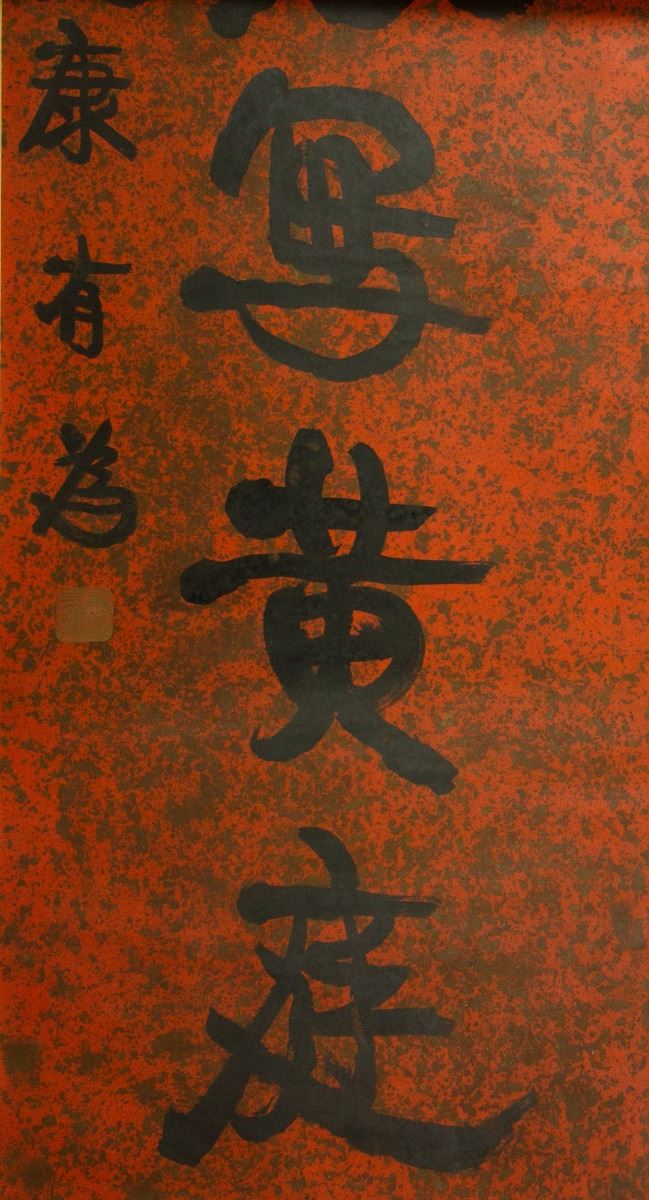 写黄庭
康有為